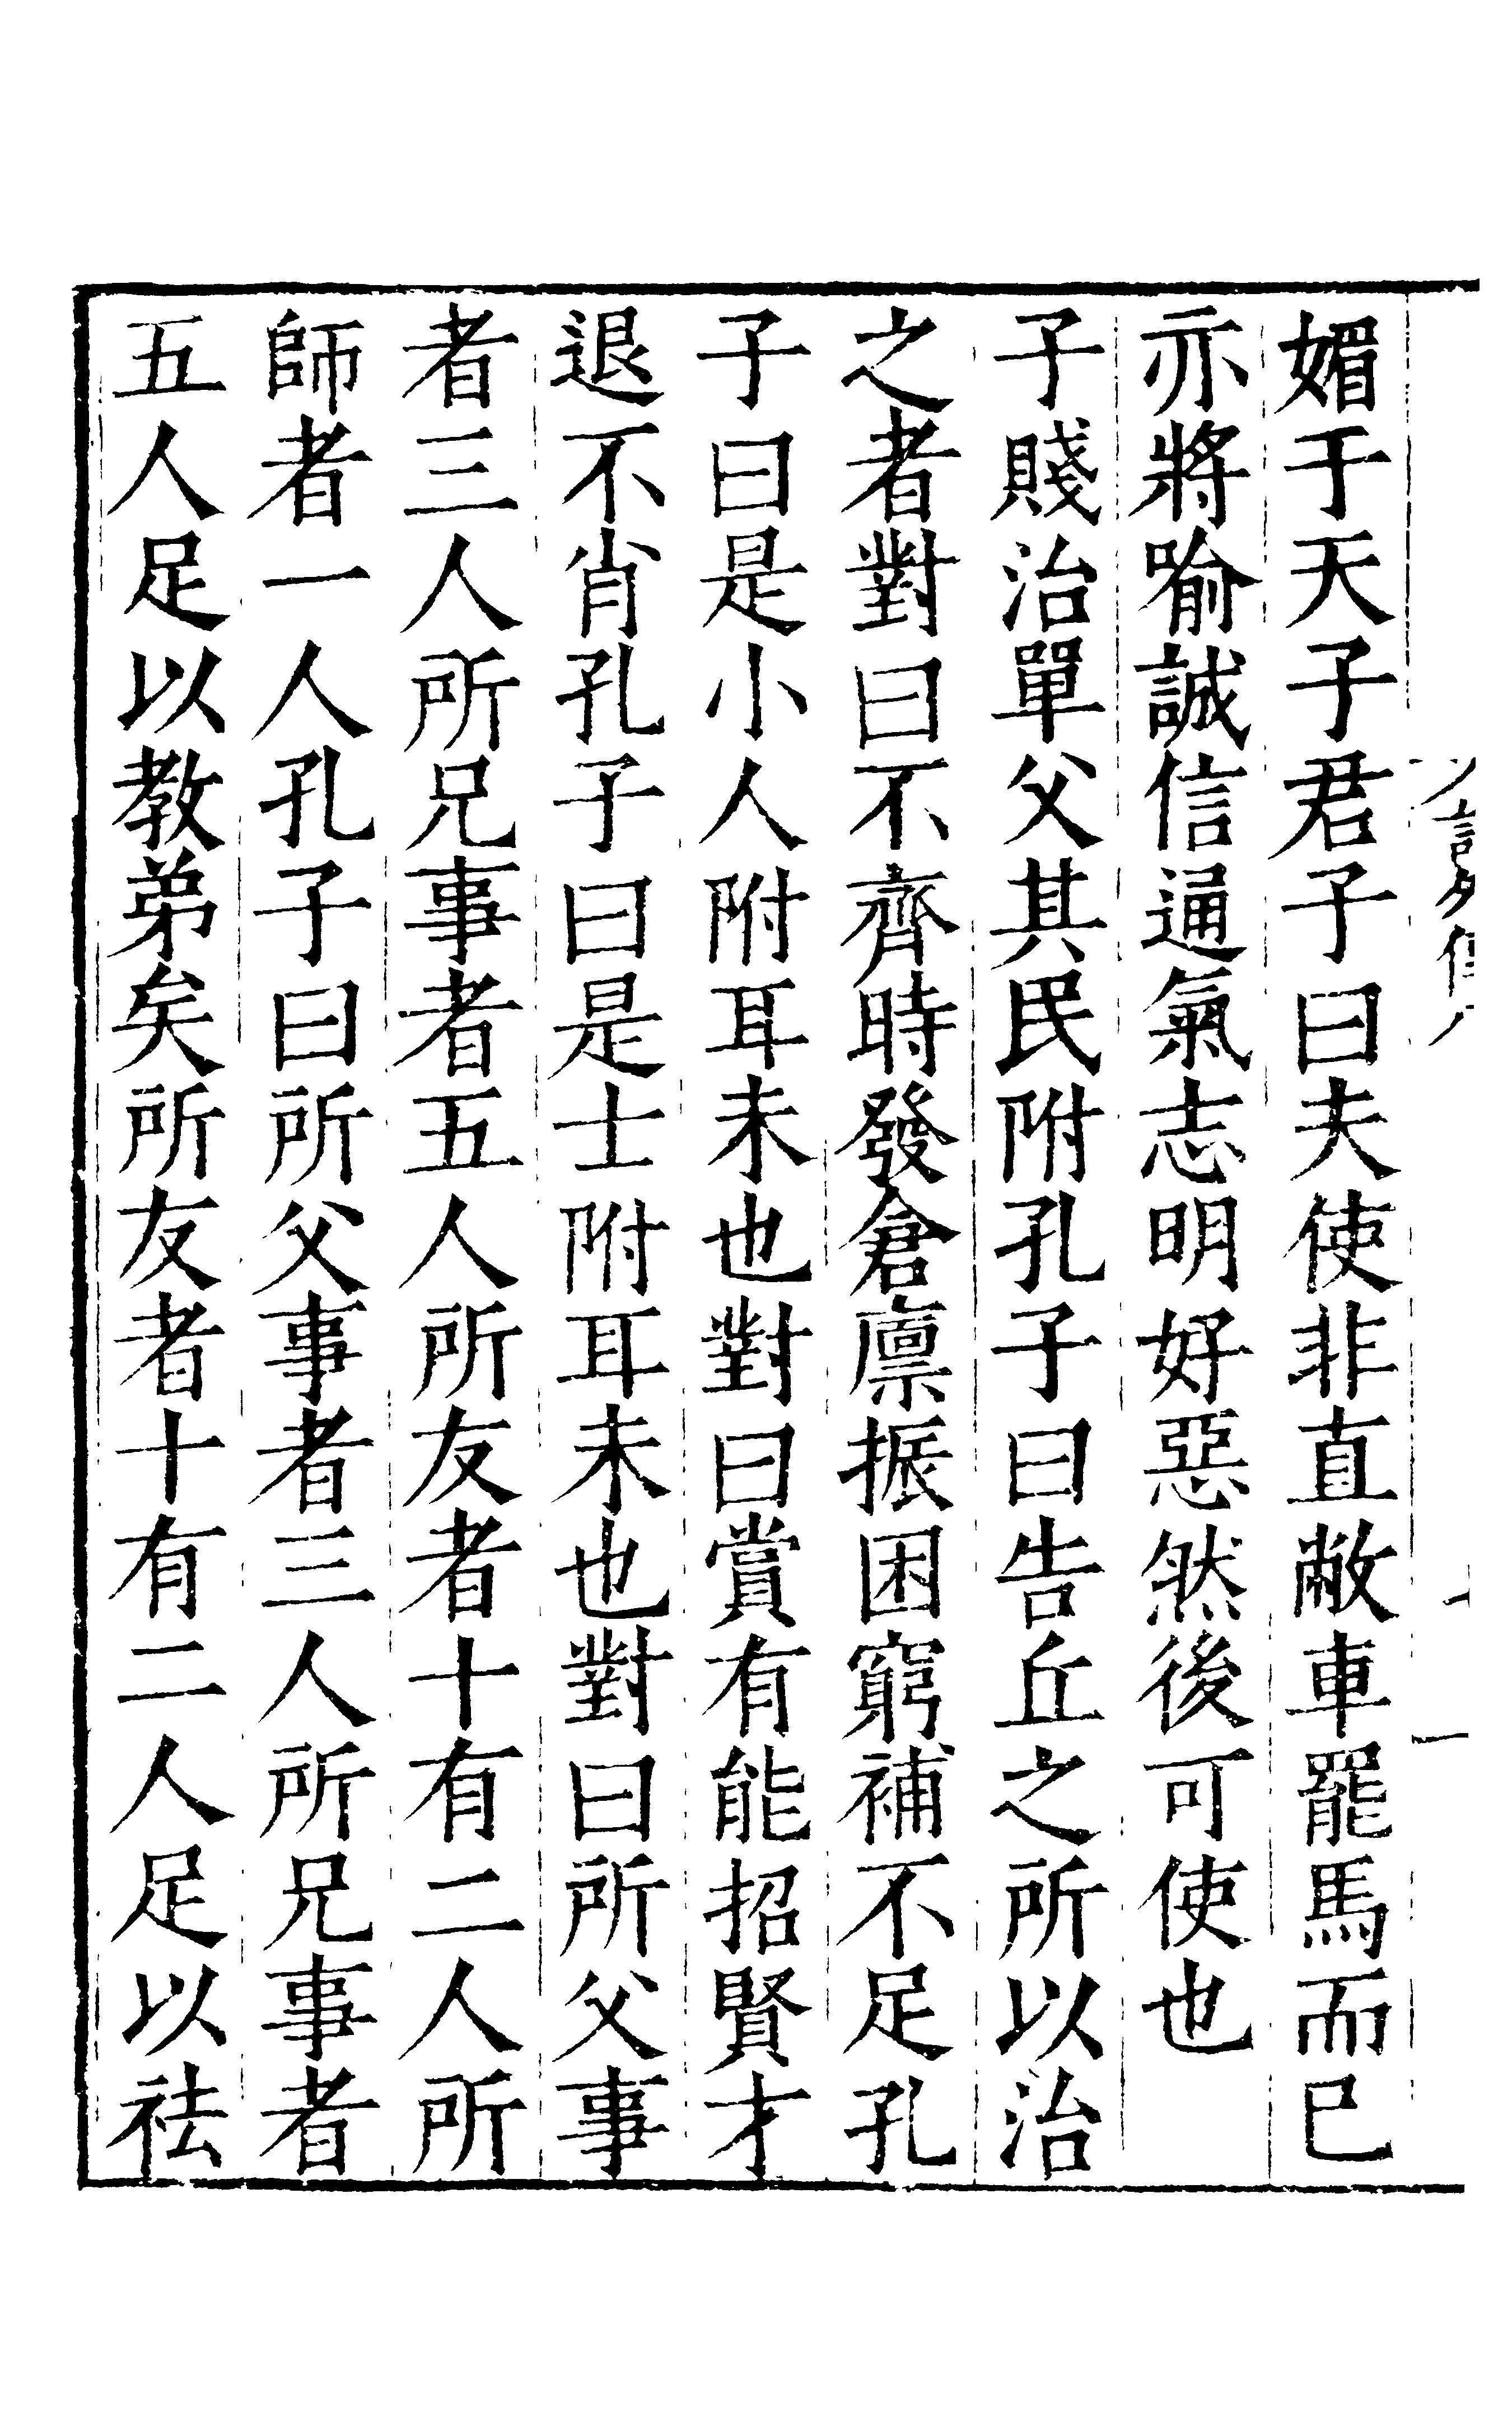 媚于天子君子曰夫使非直敝車罷馬而已
亦將喻誠信通氣志明好惡然後可使也
子賤治單父其民附孔子曰告丘之所以治
之者對曰不齊時發倉廪振困窮補不足孔
子曰是小人附耳未也對曰賞有能招賢才
退不肖孔子曰是士附耳未也對曰所父事
者三人所兄事者五人所友者十有二人所
師者一人孔子曰所父事者三人所兄事者
五人足以教弟矣所友者十有二人足以祛